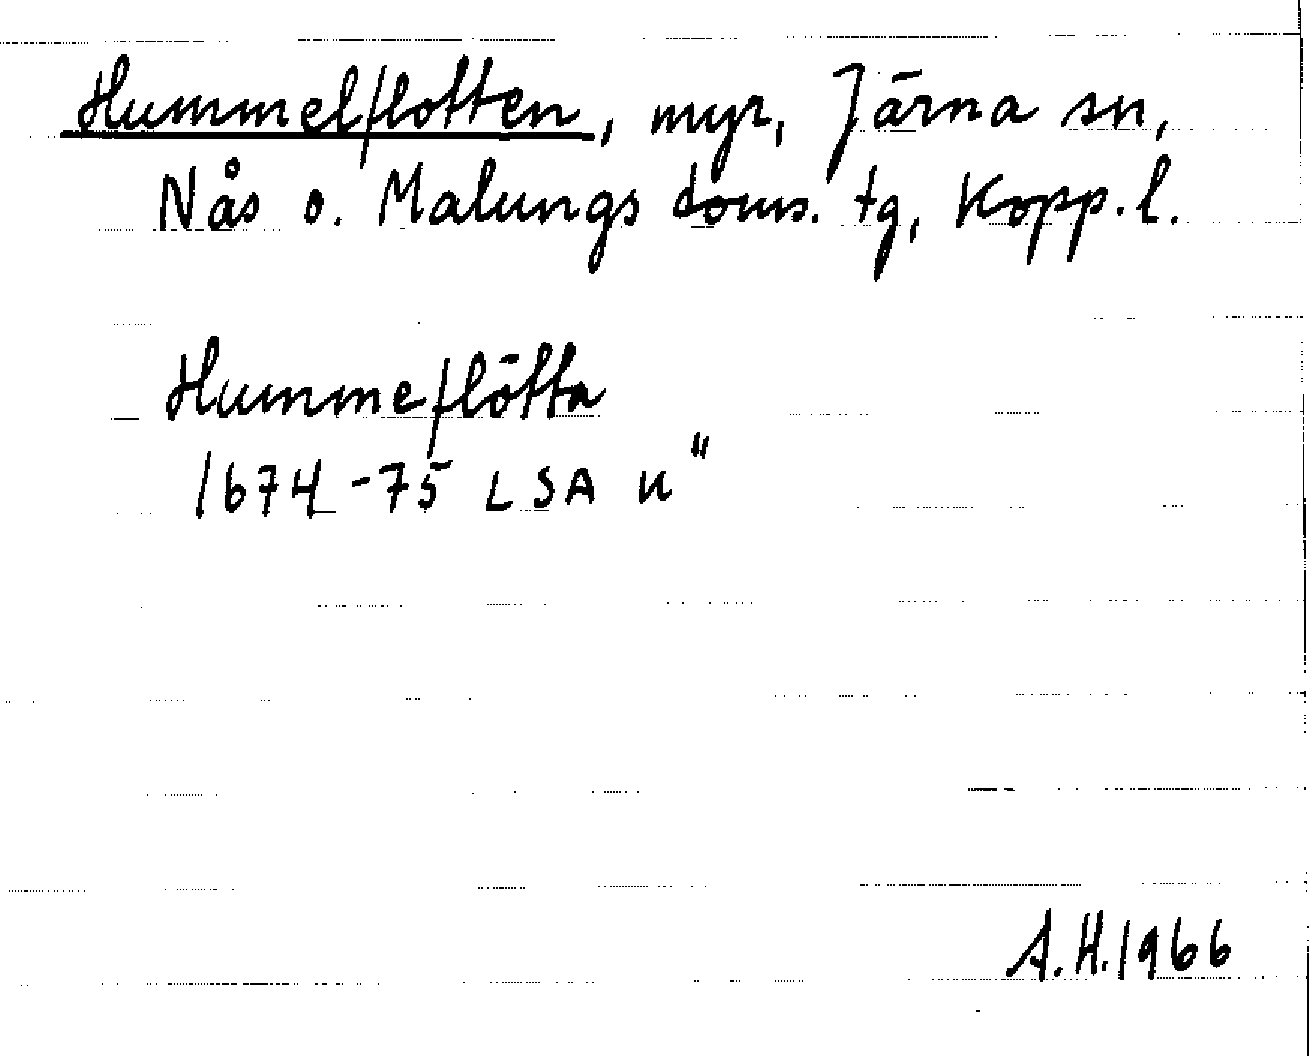 Hummelflotten, myr, Järna sn,
Nås o. Malungs doms. tg, Kopp. l.
Hummeflötta
1674-75 LSA u"
A.H. 1966